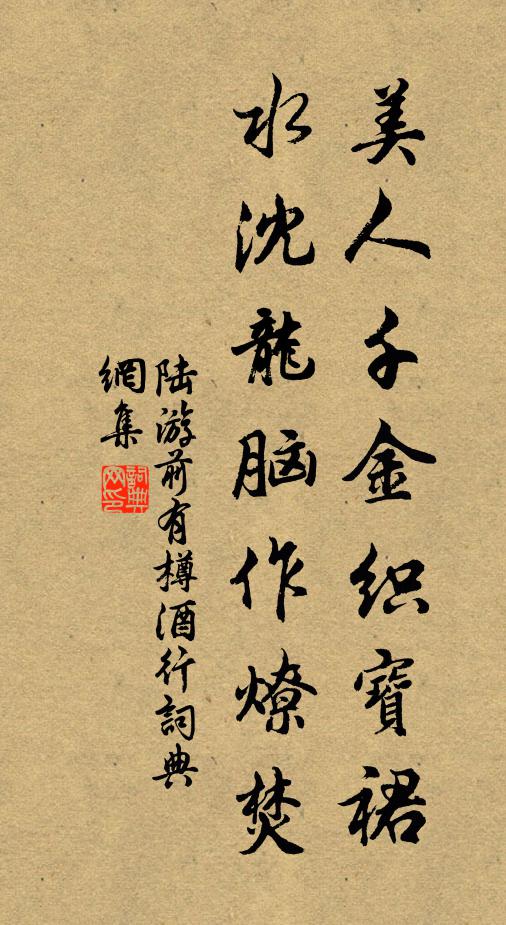 美人千金织寶裙
水沈龍脑作燎焚
陆游前有樽酒行詞典
網集
詞典网印